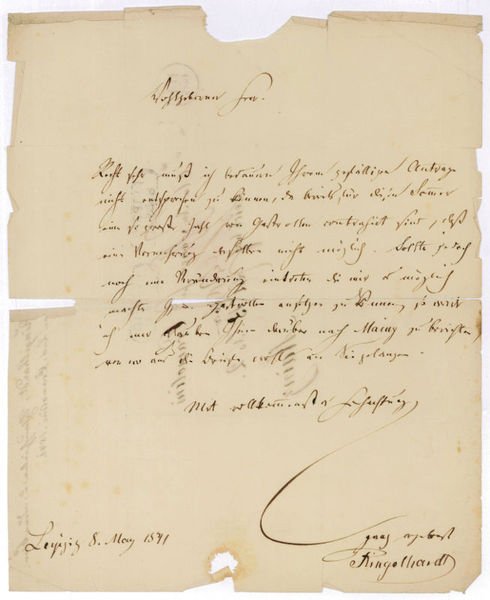 Wohlgeborner Herr.
Recht sehr muß ich bedauern Ihrem gefälligen Antrage
nicht entsprechen zu können, da bereits für diesen Sommer
eine so große Zahl von Gastrollen contrahirt sind, daß
eine Vermehrung derselben nicht möglich. Sollte jedoch
noch eine Veränderung eintreten die mir es möglich
machte Ihre Gastrollen ansetzen zu können, so werde
ich mir erlauben Ihnen darüber nach Mainz zu berichten,
von wo aus die Briefe wohl an Sie gelangen.
Mit vollkommenster Hochachtung
Leipzig 8. May 1841
ganz ergebenst
Ringelhardt